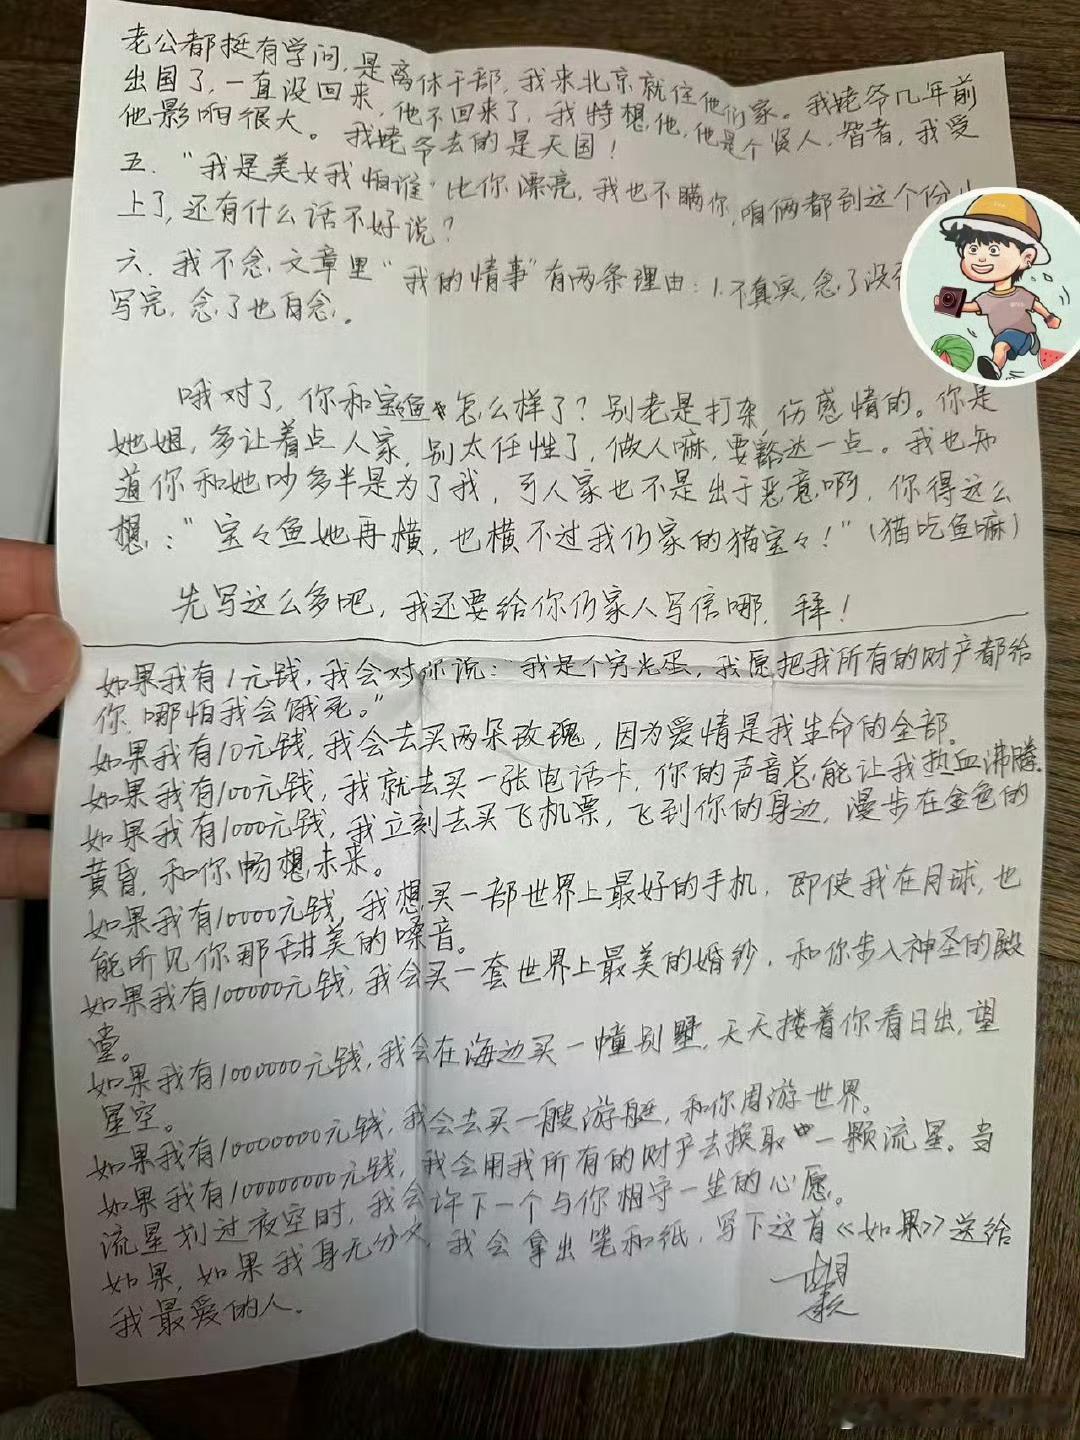 老公都挺有学问,是离休干部,我来北京就住他们家。我姥爷几年前
出国了,一直没回来,他不回来了,我特想他,他是个贤人,智者,我受
他影响很大。我姥爷去的是天国!
五.“我是美女我怕谁”比你漂亮,我也不瞒你,咱俩都到这个份儿
上了,还有什么话不好说?
六.我不念文章里“我的情事”有两条理由:1.不真实,念了没
写完,念了也白念。
哦对了,你和宝々鱼怎么样了?别老是打杂,伤感情的。你是
她姐,多让着点人家,别太任性了,做人嘛,要豁达一点。我也知
道你和她吵多半是为了我,可人家也不是出于恶意啊,你得这么
想:“宝々鱼她再横,也横不过我们家的猫宝々!”(猫吃鱼嘛)
先写这么多吧,我还要给你们家人写信哪,拜!
如果我有1元钱,我会对你说:“我是个穷光蛋,我愿把我所有的财产都给
你,哪怕我会饿死。”
如果我有10元钱,我会去买两朵玫瑰,因为爱情是我生命的全部。
如果我有100元钱,我就去买一张电话卡,你的声音总能让我热血沸腾.
如果我有1000元钱,我立刻去买飞机票,飞到你的身边,漫步在金色的
黄昏,和你畅想未来。
如果我有10000元钱,我想买一部世界上最好的手机,即使我在月球,也
能听见你那甜美的嗓音。
如果我有100000元钱,我会买一套世界上最美的婚钞,和你步入神圣的殿
堂。
如果我有1000000元钱,我会在海边买一幢别墅,天天搂着你看日出,望
星空。
如果我有10000000元钱,我会去买一艘游艇,和你周游世界。
如果我有100000000元钱,我会用我所有的财产去换取一颗流星。当
流星划过夜空时,我会许下一个与你相守一生的心愿。
如果,如果我身无分文,我会拿出笔和纸,写下这首《如果》送给
我最爱的人。